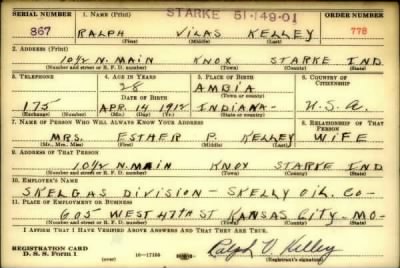 SERIAL NUMBER 1. NAME (Print) STARKE 51-149-01 ORDER NUMBER
867 RALPH VILAS KELLEY 778
(First) (Middle) (Last)
2. ADDRESS (Print)
10½ N. MAIN KNOX STARKE IND.
(Number and street or R. F. D. number) (Town) (County) (State)
3. TELEPHONE 4. AGE IN YEARS 5. PLACE OF BIRTH 6. COUNTRY OF CITIZENSHIP
28 AMBIA
DATE OF BIRTH (Town or county)
175 APR. 14 1912 INDIANA- U.S.A.
(Exchange) (Number) (Mo.) (Day) (Yr.) (State or country)
7. NAME OF PERSON WHO WILL ALWAYS KNOW YOUR ADDRESS 8. RELATIONSHIP OF THAT PERSON
MRS. ESTHER P. KELLEY WIFE
(Mr., Mrs., Miss) (First) (Middle) (Last)
9. ADDRESS OF THAT PERSON
10½ N. MAIN KNOX STARKE IND
(Number and street or R. F. D. number) (Town) (County) (State)
10. EMPLOYER'S NAME
SKELGAS DIVISION - SKELLY OIL CO-
11. PLACE OF EMPLOYMENT OR BUSINESS
605 WEST 47TH ST KANSAS CITY- MO-
(Number and street or R. F. D. number) (Town) (County) (State)
I AFFIRM THAT I HAVE VERIFIED ABOVE ANSWERS AND THAT THEY ARE TRUE.
REGISTRATION CARD
D. S. S. Form 1 (over) 16-17105 Ralph V. Kelley
(Registrant's signature)